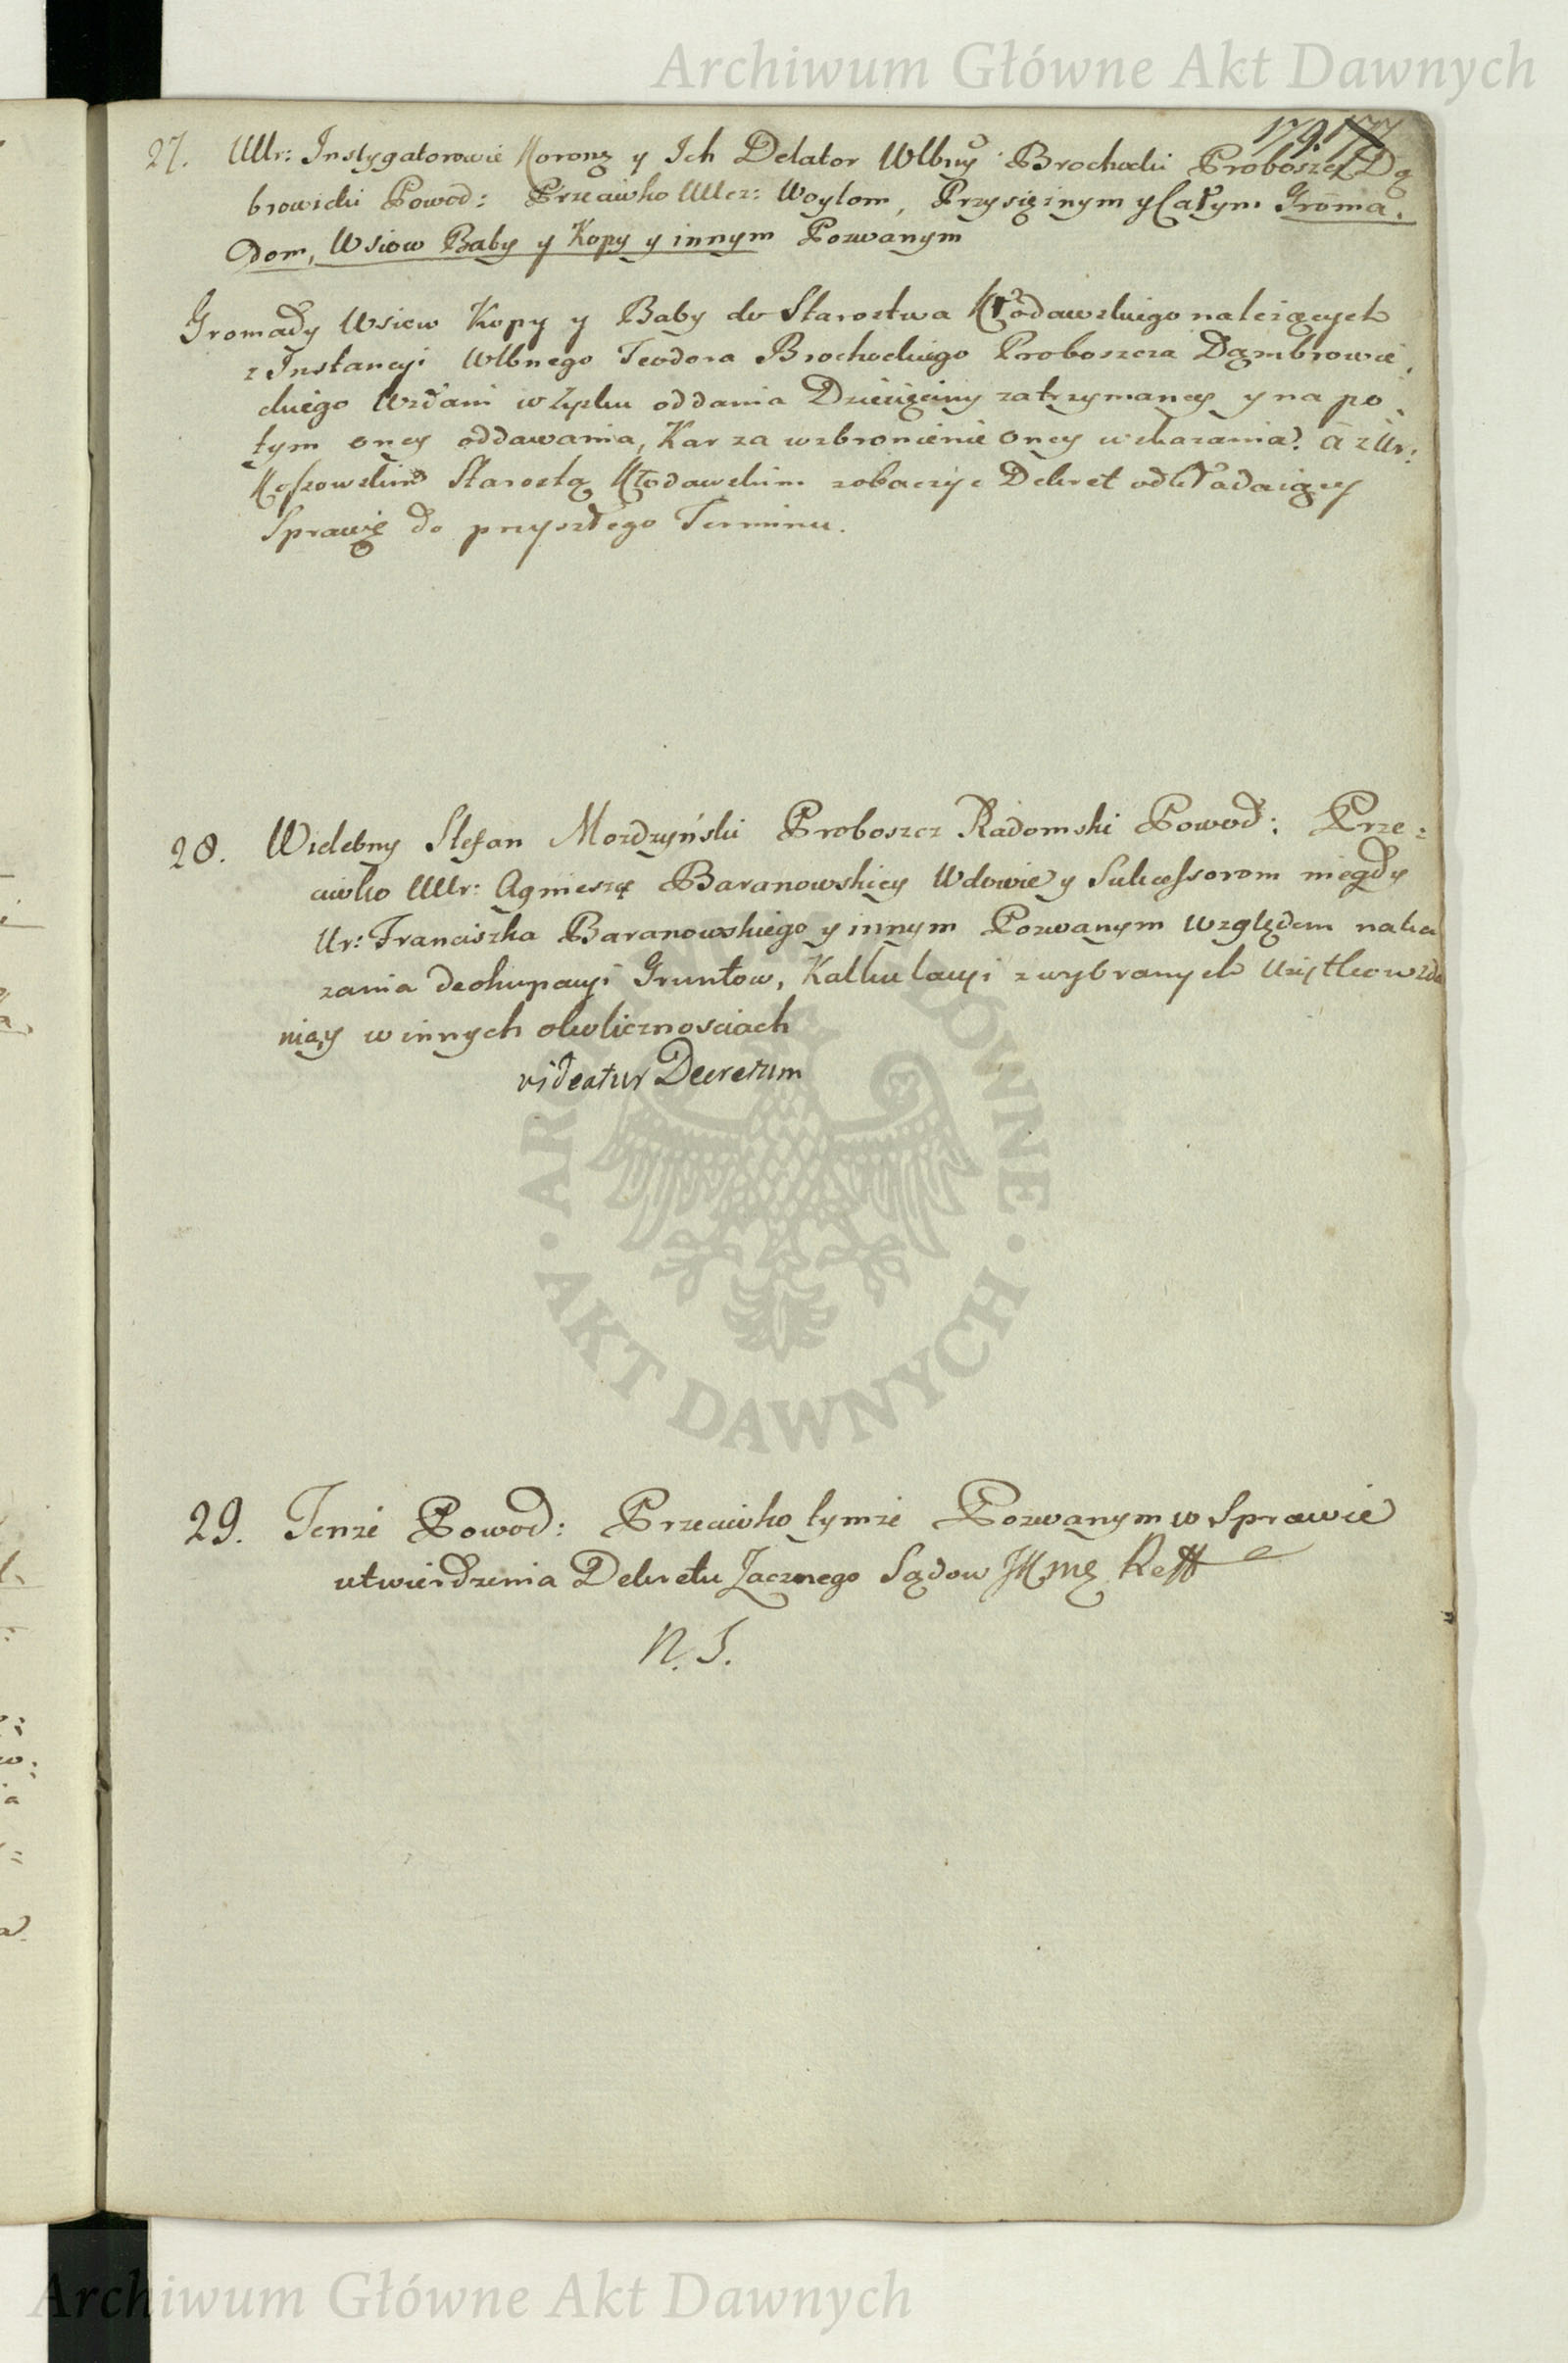 Archiwum Główne Akt Dawnych
179. 177
27. UUr: Instygatorowie Korony y Ich Delator Wlbny Brochocki Proboszcz Dą
browicki Powod: Przeciwko UUcz: Woytom, Przysiężnym y Całym Groma,
dom, Wsiow Baby y Kopy y innym Pozwanym
Gromady Wsiow Kopy y Baby do Starostwa Kłodawskiego należących
z Instancyi Wlbnego Teodora Brochockiego Proboszcza Dąmbrowic,
ckiego Wzdani w Zysku oddania Dziesięciny zatrzymaney y na po,
tym oney oddawania, Kar za wzbronienie oney wskazania? a z Ur:
Starostą Kłodawskim zobaczyc Dekret odkładaiący
Sprawę do przyszłego Terminu.
28. Wielebny Stefan Mordzyński Proboszcz Radomski Powod: Prze:
ciwko UUr: Agnieszę Baranowskiey Wdowie y Sukcessorom niegdy
Ur: Franciszka Baranowskiego y innym Pozwanym względem naka
zania deokupacyi Gruntow, Kalkulacyi z wybranych Użytkow zda
nia, y w innych okolicznosciach
videatur Decretum
29. Tenże Powod: Przeciwko tymże Pozwanym w Sprawie
utwierdzenia Dekretu Zacznego Sądow
N. S.
ARCHIWUM GŁÓWNE · AKT DAWNYCH ·
Archiwum Główne Akt Dawnych